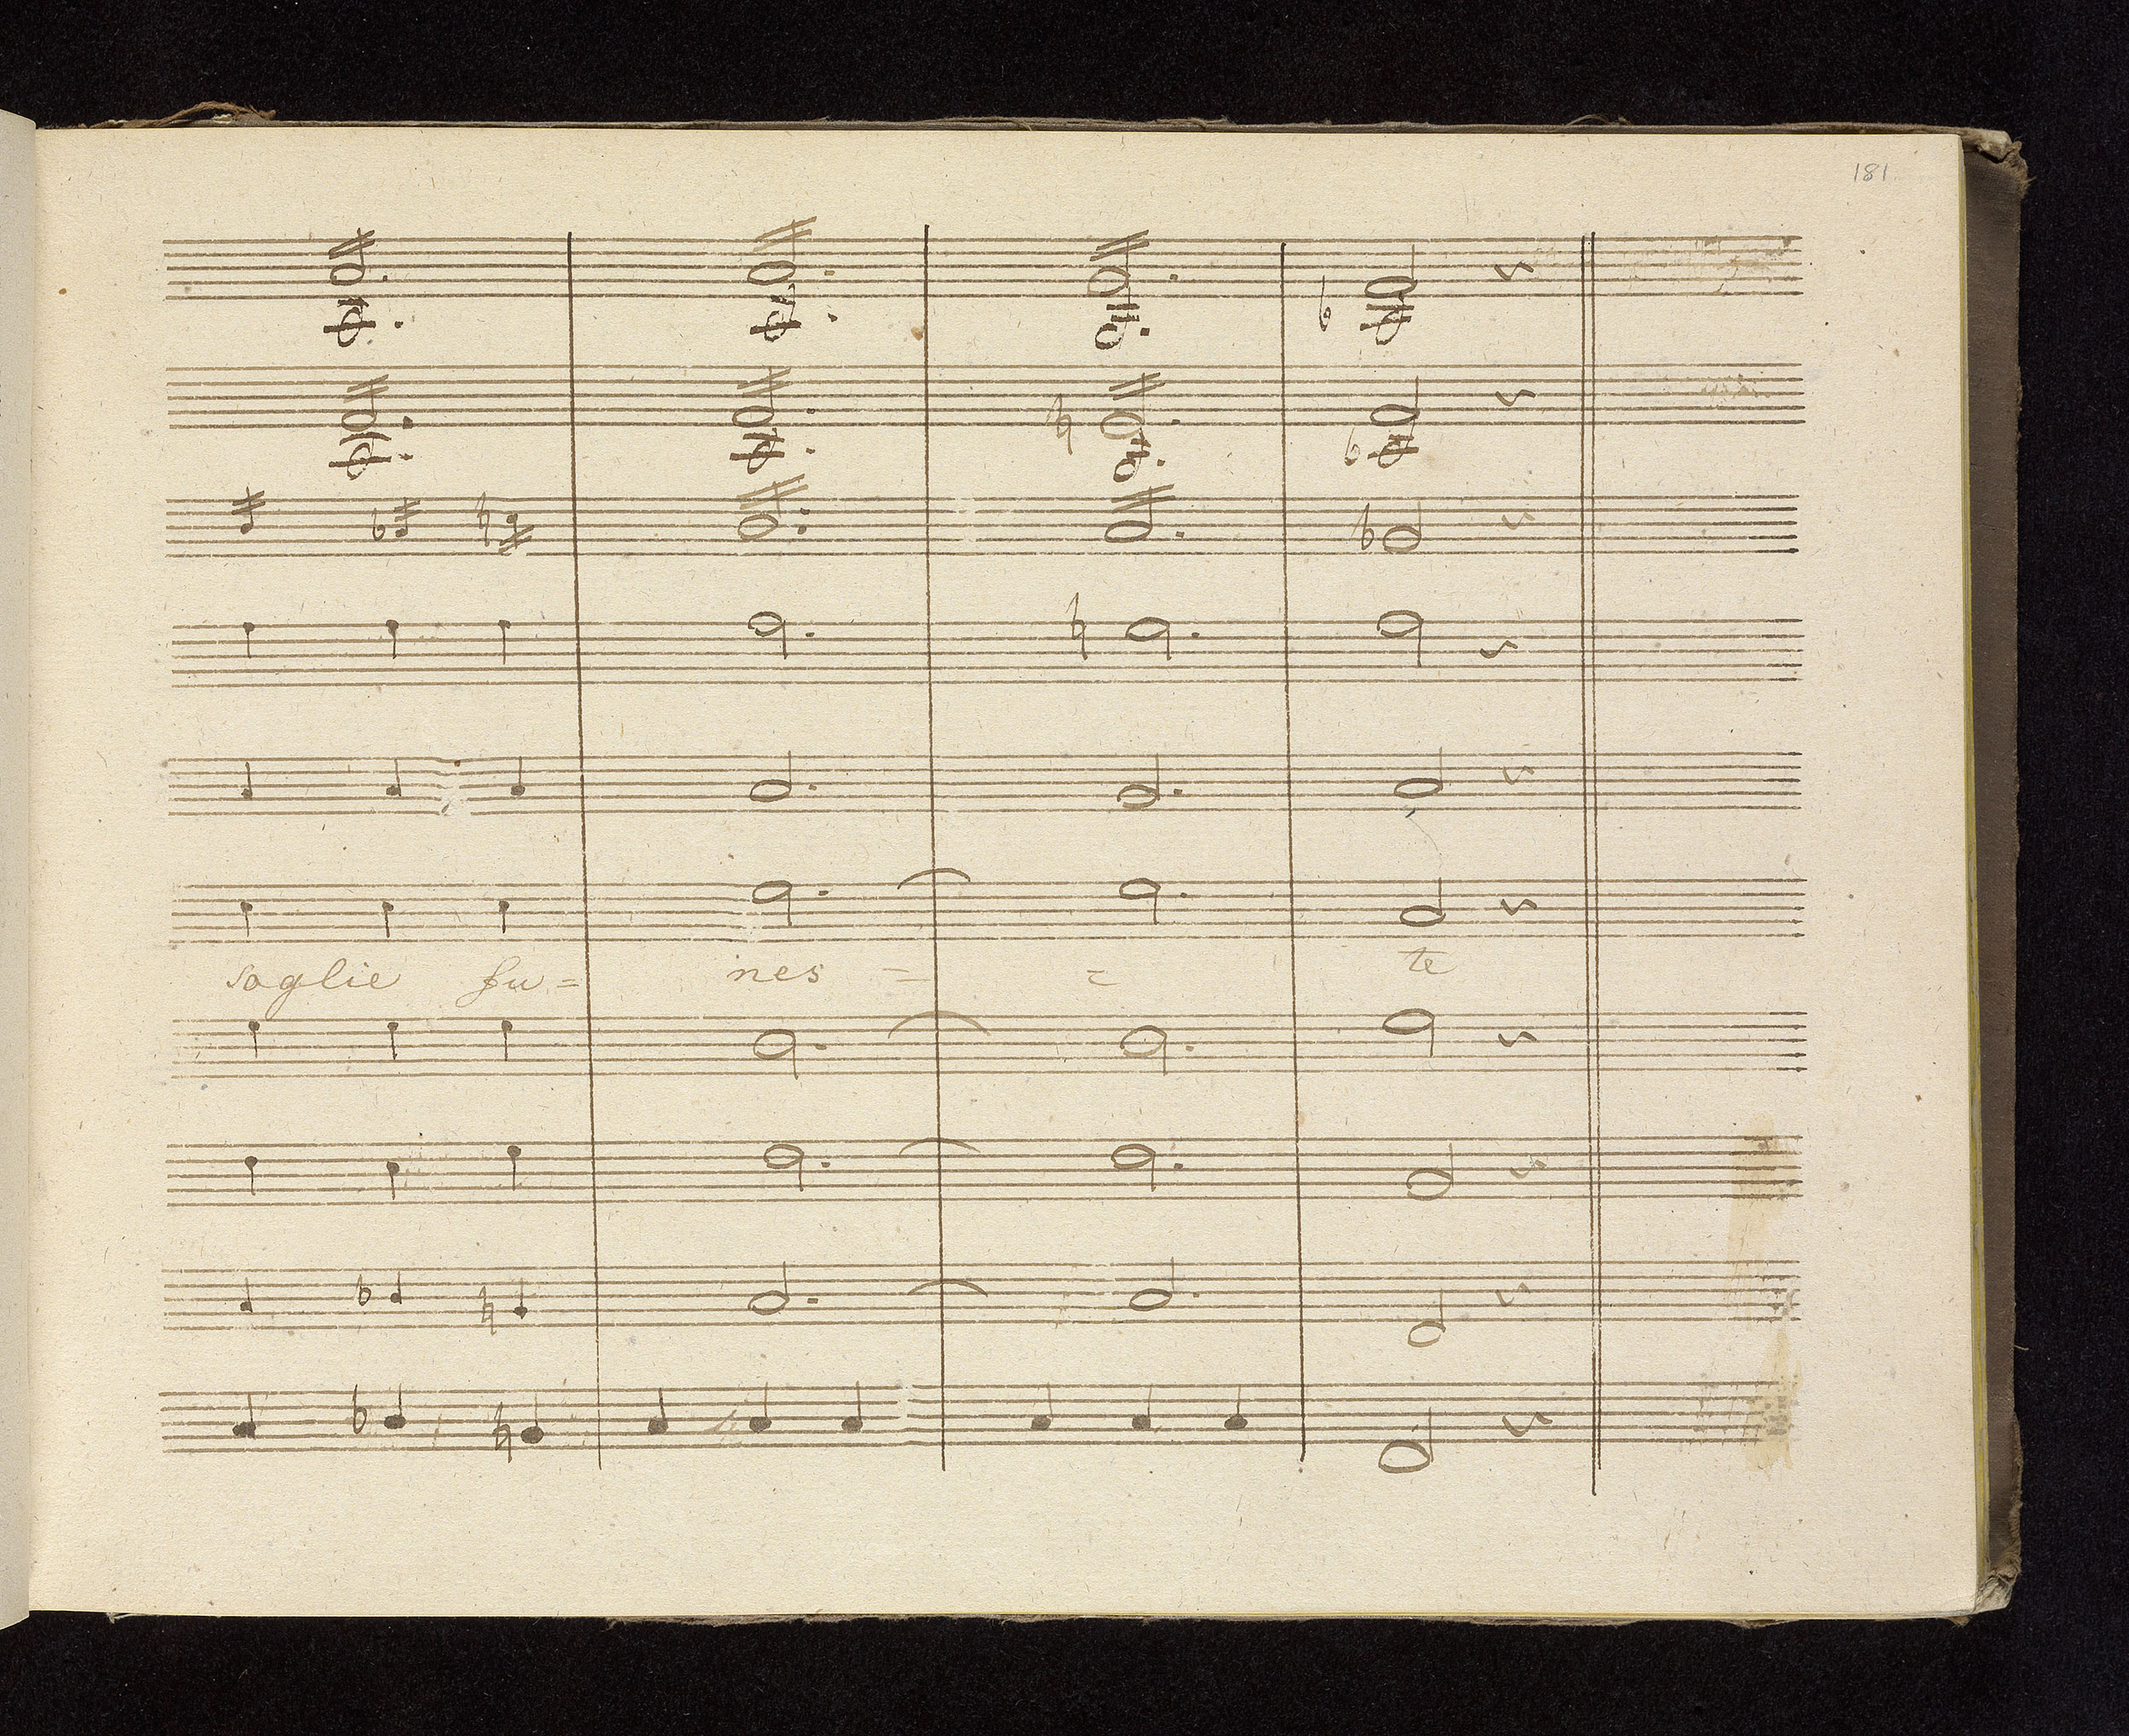 181
soglie fu= nes = = te